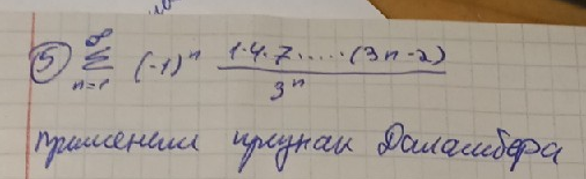 ⑤ ∞ Σ n=1 (-1)ⁿ 1·4·7·....·(3n-2) / 3ⁿ
Применим признак Даламбера